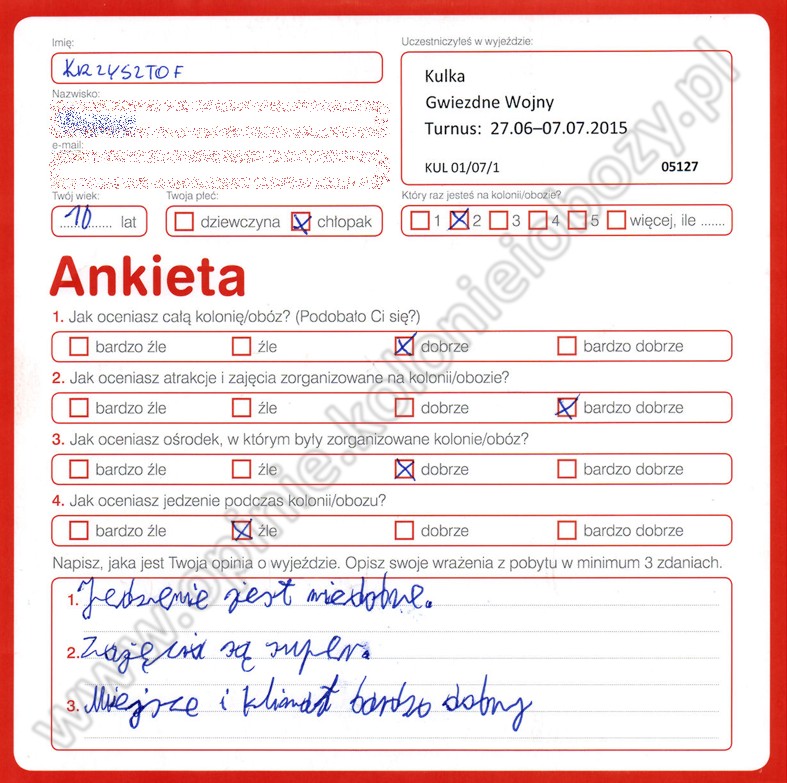 Imię:
KRZYSZTOF
Nazwisko:
e-mail:
Twój wiek:
10 lat
Twoja płeć:
dziewczyna chłopak
Uczestniczyłeś w wyjeździe:
Kulka
Gwiezdne Wojny
Turnus: 27.06–07.07.2015
KUL 01/07/1 05127
Który raz jesteś na kolonii/obozie?
1 2 3 4 5 więcej, ile .......
Ankieta
1. Jak oceniasz całą kolonię/obóz? (Podobało Ci się?)
bardzo źle źle dobrze bardzo dobrze
2. Jak oceniasz atrakcje i zajęcia zorganizowane na kolonii/obozie?
bardzo źle źle dobrze bardzo dobrze
3. Jak oceniasz ośrodek, w którym były zorganizowane kolonie/obóz?
bardzo źle źle dobrze bardzo dobrze
4. Jak oceniasz jedzenie podczas kolonii/obozu?
bardzo źle źle dobrze bardzo dobrze
Napisz, jaka jest Twoja opinia o wyjeździe. Opisz swoje wrażenia z pobytu w minimum 3 zdaniach.
1. Jedzenie jest niedobre.
2. Zajęcia są super.
3. Miejsce i klimat bardzo dobry
www.opinie.kolonieiobozy.pl